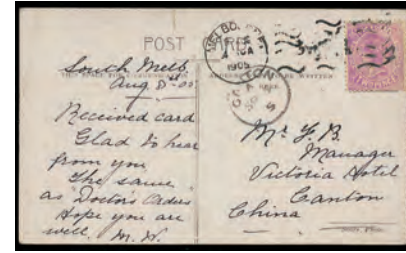 POST CARD
MELBOURNE
1905
CANTON
South Melb.
Aug 8th 05
Received card
Glad to hear
from you
The same
as Doctor's Orders
Hope you are
well. M. W.
Mr Y. B.
Manager
Victoria Hotel
Canton
China